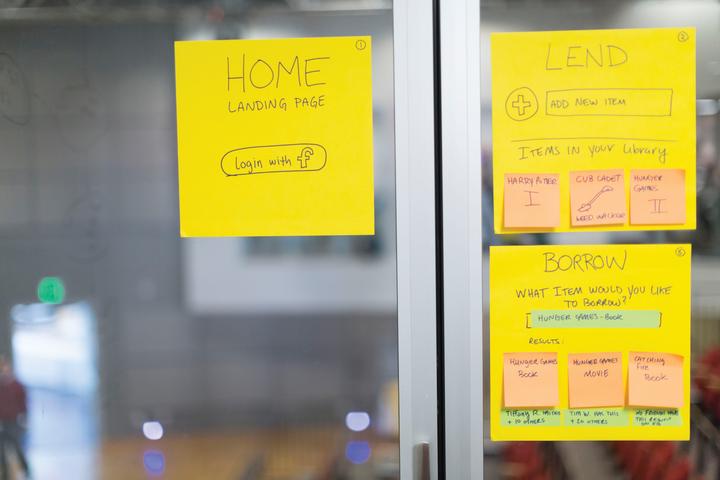 1
HOME
LANDING PAGE
login with f
2
LEND
ADD NEW ITEM
ITEMS IN YOUR Library
HARRY POTTER
I
CUB CADET
WEED WACKER
HUNGER
GAMES
II
BORROW
WHAT ITEM WOULD YOU LIKE
TO BORROW?
HUNGER GAMES - Book
RESULTS:
HUNGER GAMES
Book
HUNGER GAMES
MOVIE
CATCHING
Fire
Book
Tiffany R. has this
+ 10 OTHERS
TIM W. HAS THIS
+ 20 OTHERS
NO FRIENDS HAVE
THIS
ON FB